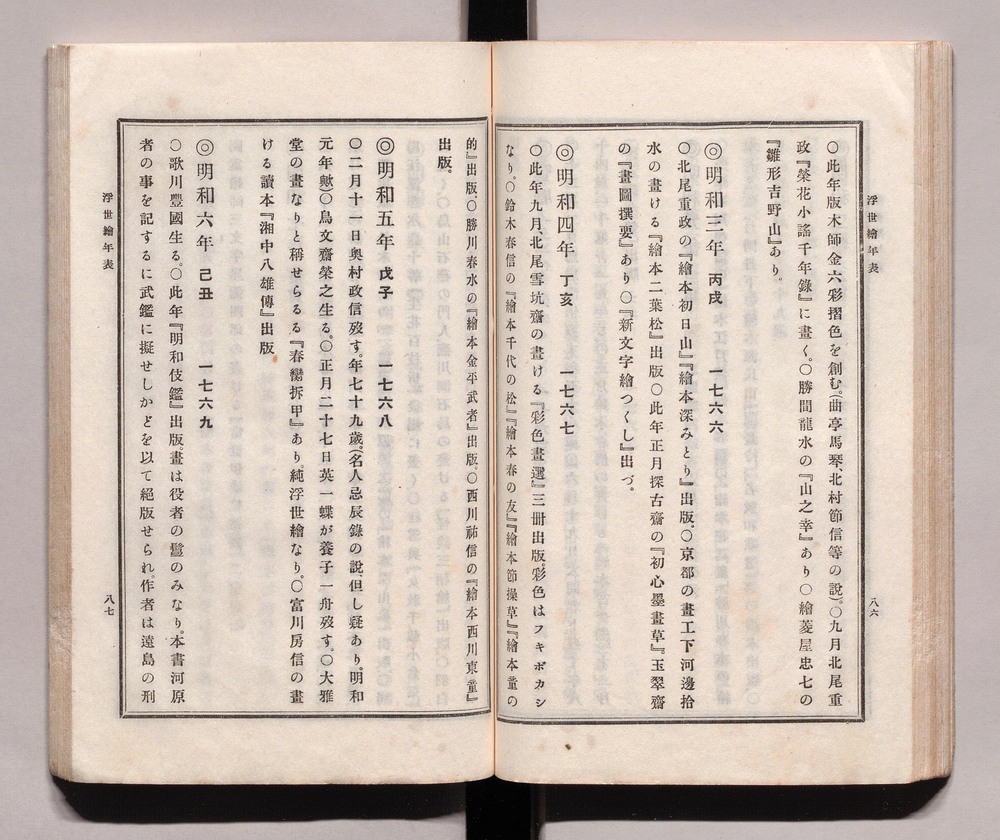 浮世繪年表
八六
〇此年版木師金六彩摺色を創む。(曲亭馬琴、北村節信等の說)。〇九月北尾重
政『榮花小謠千年錄』に畫く。〇勝間龍水の『山之幸』あり〇繪菱屋忠七の
『雛形吉野山』あり。
◎明和三年 丙戌 一七六六
〇北尾重政の『繪本初日山』『繪本深みとり』出版。〇京都の畫工下河邊拾
水の畫ける『繪本二葉松』出版〇此年正月探古齋の『初心墨畫草』、玉翠齋
の『畫圖撰要』あり〇『新文字繪つくし』出づ。
◎明和四年 丁亥 一七六七
〇此年九月、北尾雪坑齋の畫ける『彩色畫選』三冊出版。彩色はフキボカシ
なり。〇鈴木春信の『繪本千代の松』『繪本春の友』『繪本節操草』『繪本童の
的』出版。〇勝川春水の『繪本金平武者』出版。〇西川祐信の『繪本西川東童』
出版。
◎明和五年 戊子 一七六八
〇二月十一日奧村政信歿す。年七十九歲。(名人忌辰錄の說、但し疑あり。明和
元年歟)〇鳥文齋榮之生る。〇正月二十七日英一蝶が養子一舟歿す。〇大雅
堂の畫なりと稱せらるる『春臠拆甲』あり。純浮世繪なり。〇富川房信の畫
ける讀本『湘中八雄傳』出版
◎明和六年 己丑 一七六九
〇歌川豐國生る。〇此年『明和伎鑑』出版畫は役者の鬘のみなり。本書河原
者の事を記するに武鑑に擬せしかどを以て絕版せられ。作者は遠島の刑
浮世繪年表
八七